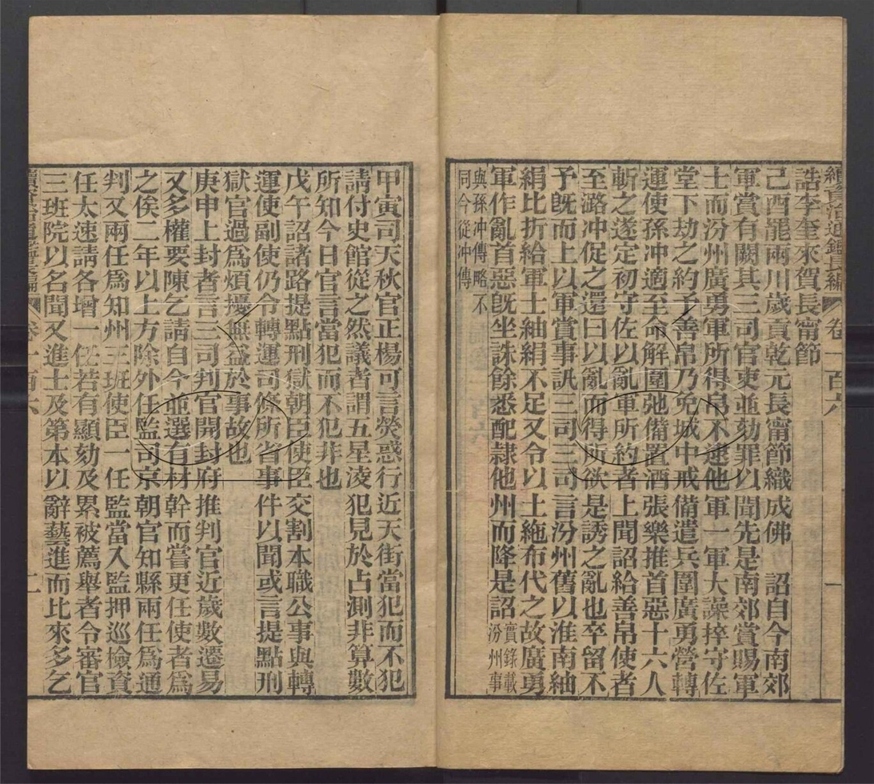 續資治通鑑長編 卷一百六 一
誥李奎來賀長甯節
己酉罷兩川歲貢乾元長甯節織成佛 詔自今南郊
軍賞有闕其三司官吏並劾罪以聞先是南郊賞賜軍
士而汾州廣勇軍所得帛不逮他軍一軍大譟捽守佐
堂下劫之約予善帛乃免城中戒備遣兵圍廣勇營轉
運使孫冲適至命解圍弛備置酒張樂推首惡十六人
斬之遂定初守佐以亂軍所約者上聞詔給善帛使者
至潞冲促之還曰以亂而得所欲是誘之亂也卒留不
予旣而上以軍賞事訊三司三司言汾州舊以淮南紬
絹比折給軍士紬絹不足又令以土絁布代之故廣勇
軍作亂首惡旣坐誅餘悉配隸他州而降是詔實錄載汾州事
與孫冲傳略不
同今從冲傳
甲寅司天秋官正楊可言熒惑行近天街當犯而不犯
請付史館從之然議者謂五星凌犯見於占測非算數
所知今日官言當犯而不犯非也
戊午詔諸路提點刑獄朝臣使臣交割本職公事與轉
運使副使仍令轉運司條所省事件以聞或言提點刑
獄官過爲煩擾無益於事故也
庚申上封者言三司判官開封府推判官近歲數遷易
又多權要陳乞請自今並選有材幹而嘗更任使者爲
之俟二年以上方除外任監司京朝官知縣兩任爲通
判又兩任爲知州三班使臣一任監當入監押巡檢資
任太速請各增一任若有顯効及累被薦舉者令審官
三班院以名聞又進士及第本以辭藝進而比來多乞
續資治通鑑長編 卷一百六 二